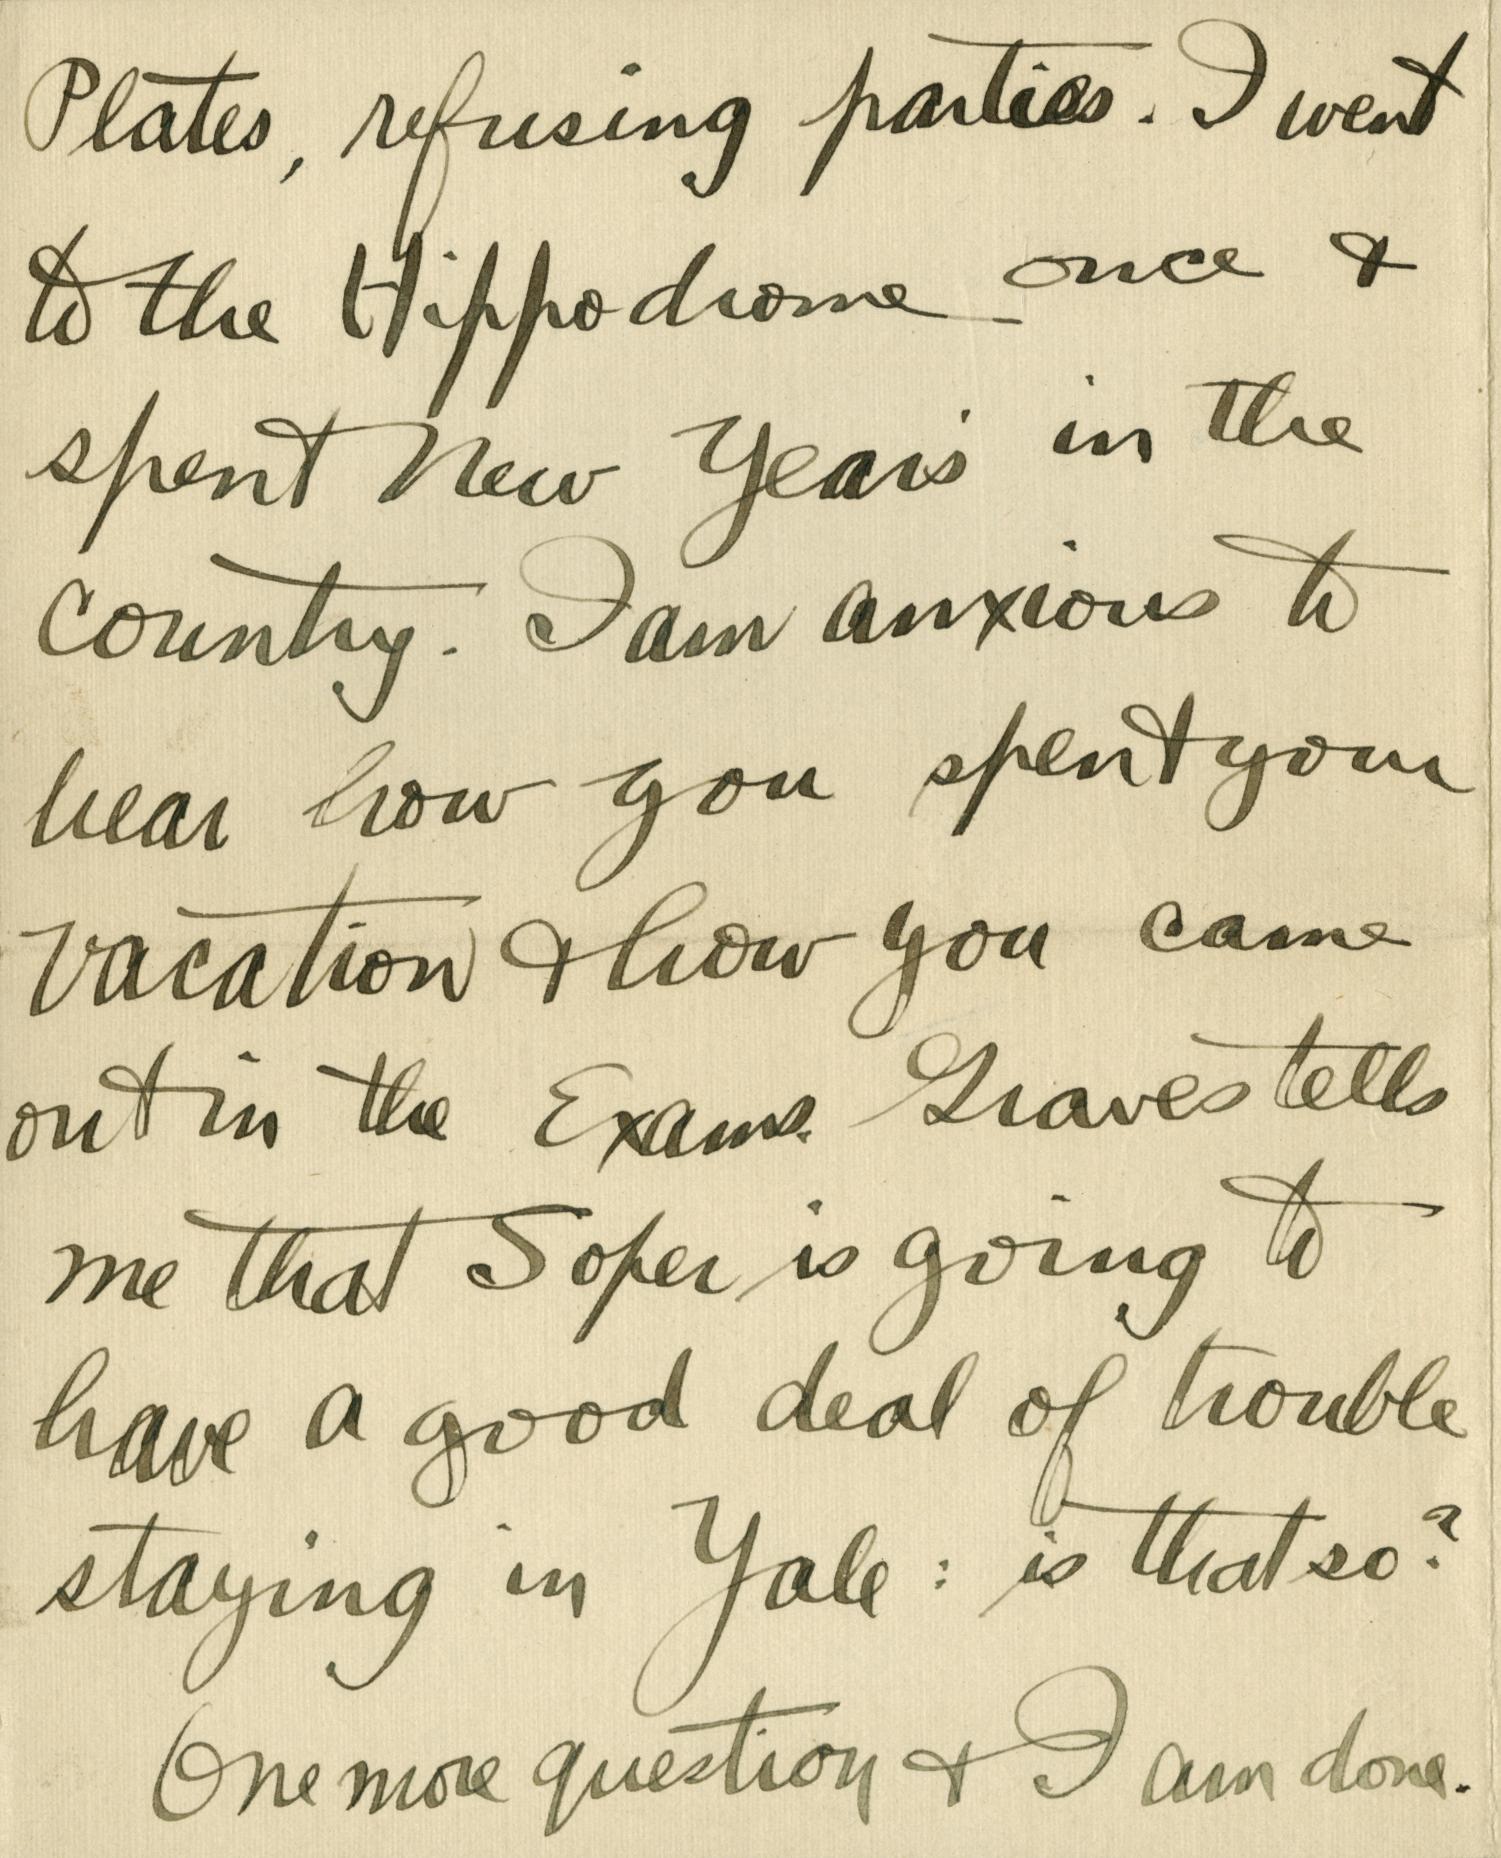 Plates, refusing parties. I went
to the Hippodrome once &
spent New Years in the
Country. I am anxious to
hear how you spent your
vacation & how you came
out in the Exams. Graves tells
me that Soper is going to
have a good deal of trouble
staying in Yale: is that so?
One more question & I am done.